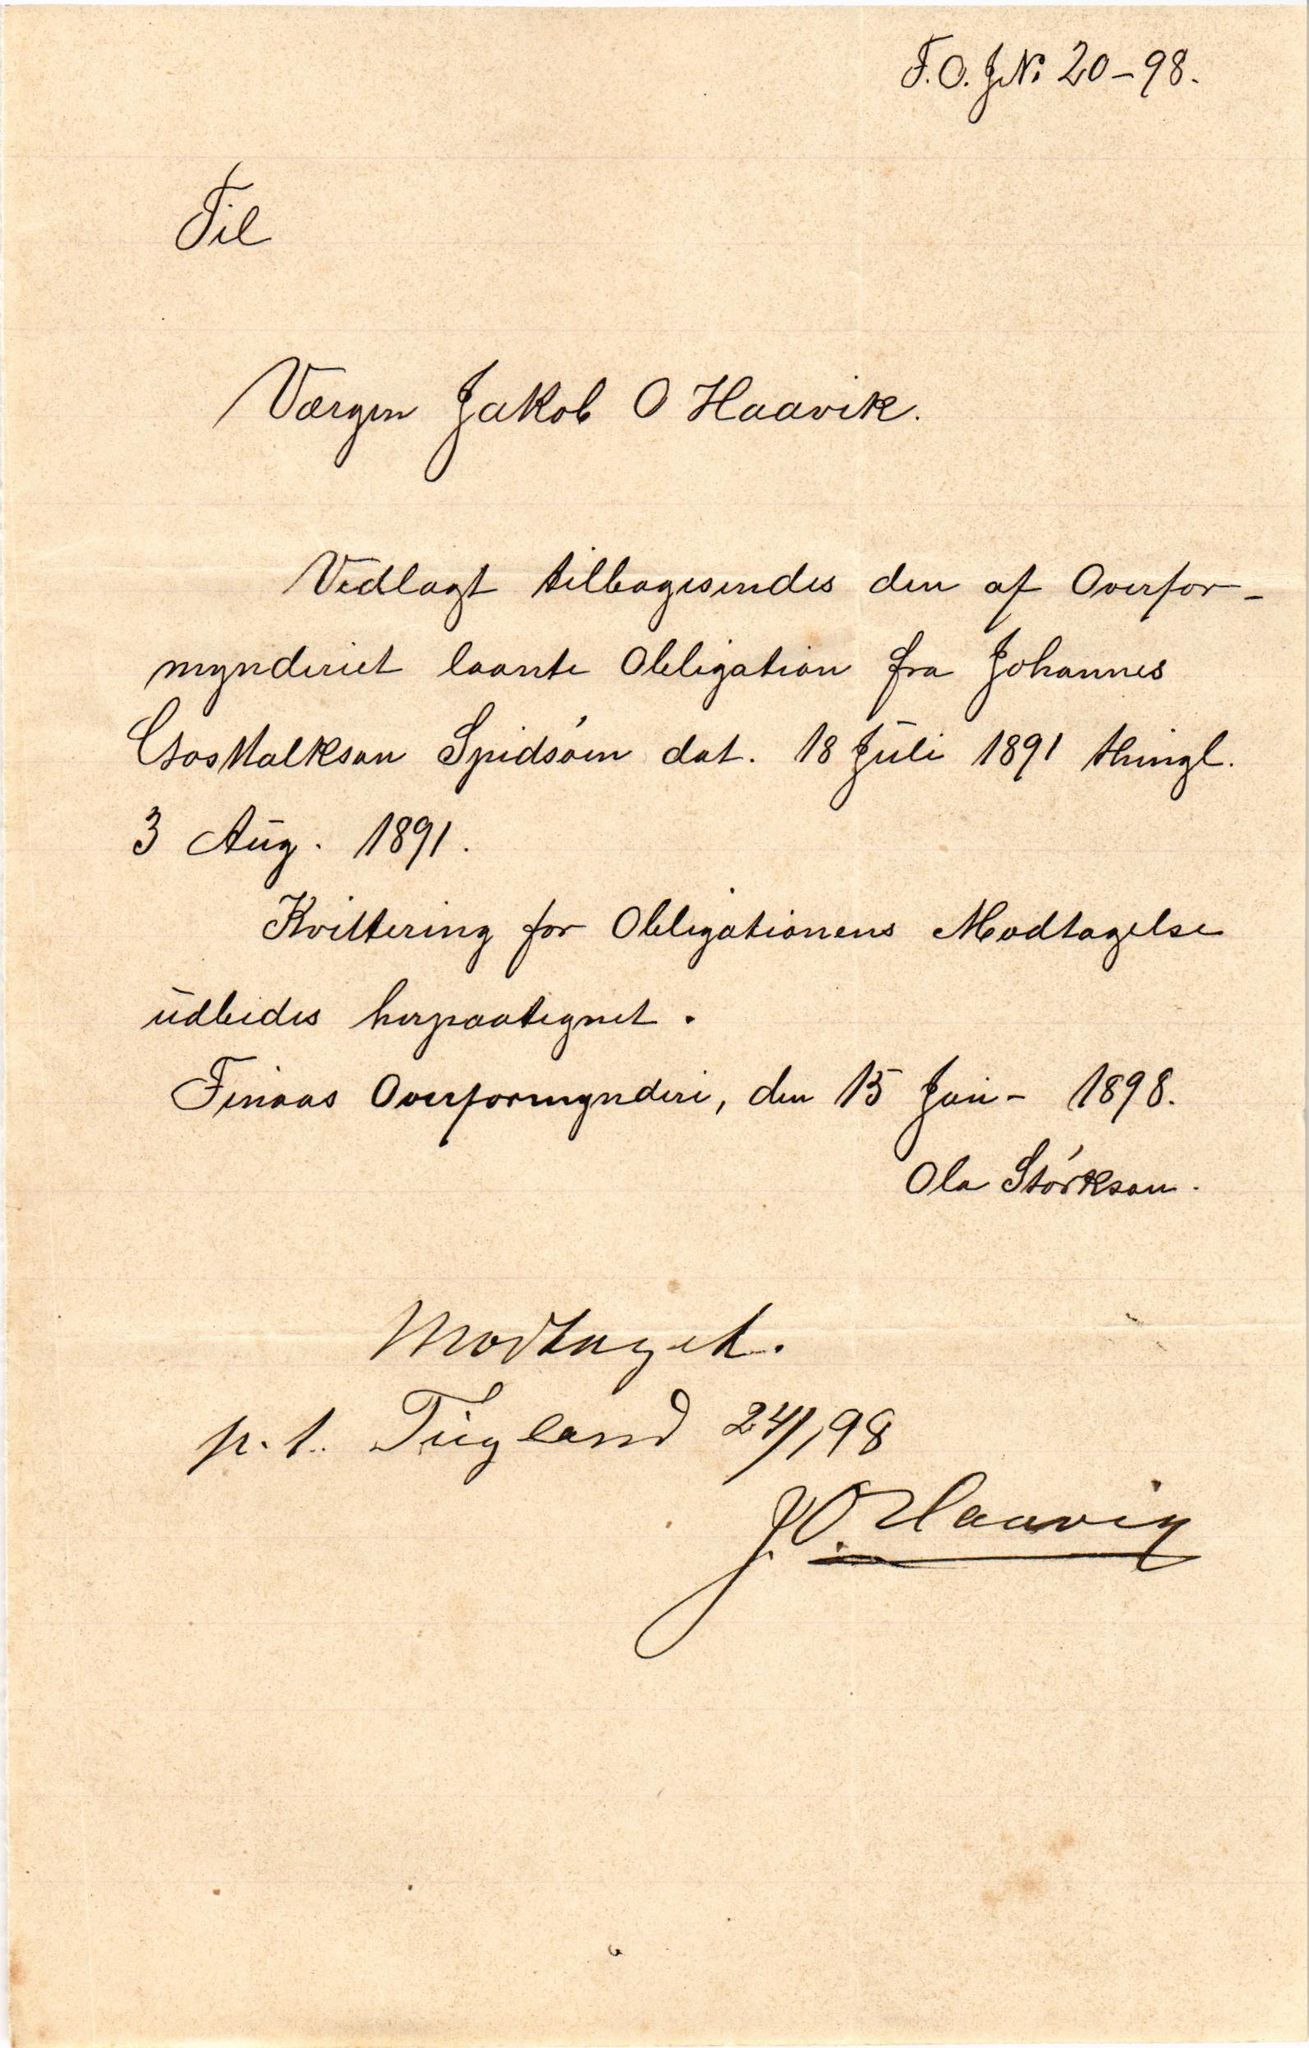 F.O. J№ 20-98.
Til
Værgen Jakob O Haavik.
Vedlagt tilbagesendes den af Overfor-
mynderiet laante Obligation fra Johannes
Gostalkson Spidsöen dat. 18 Juli 1891 thingl.
3 Aug. 1891.
Kvittering for Obligationens Modtagelse
udbedes herpaategnet.
Finaas Overformynderi, den 15 Jan- 1898.
Ola Störkson.
Modtaget.
p.t. 24/1 98
J.O. Haavig